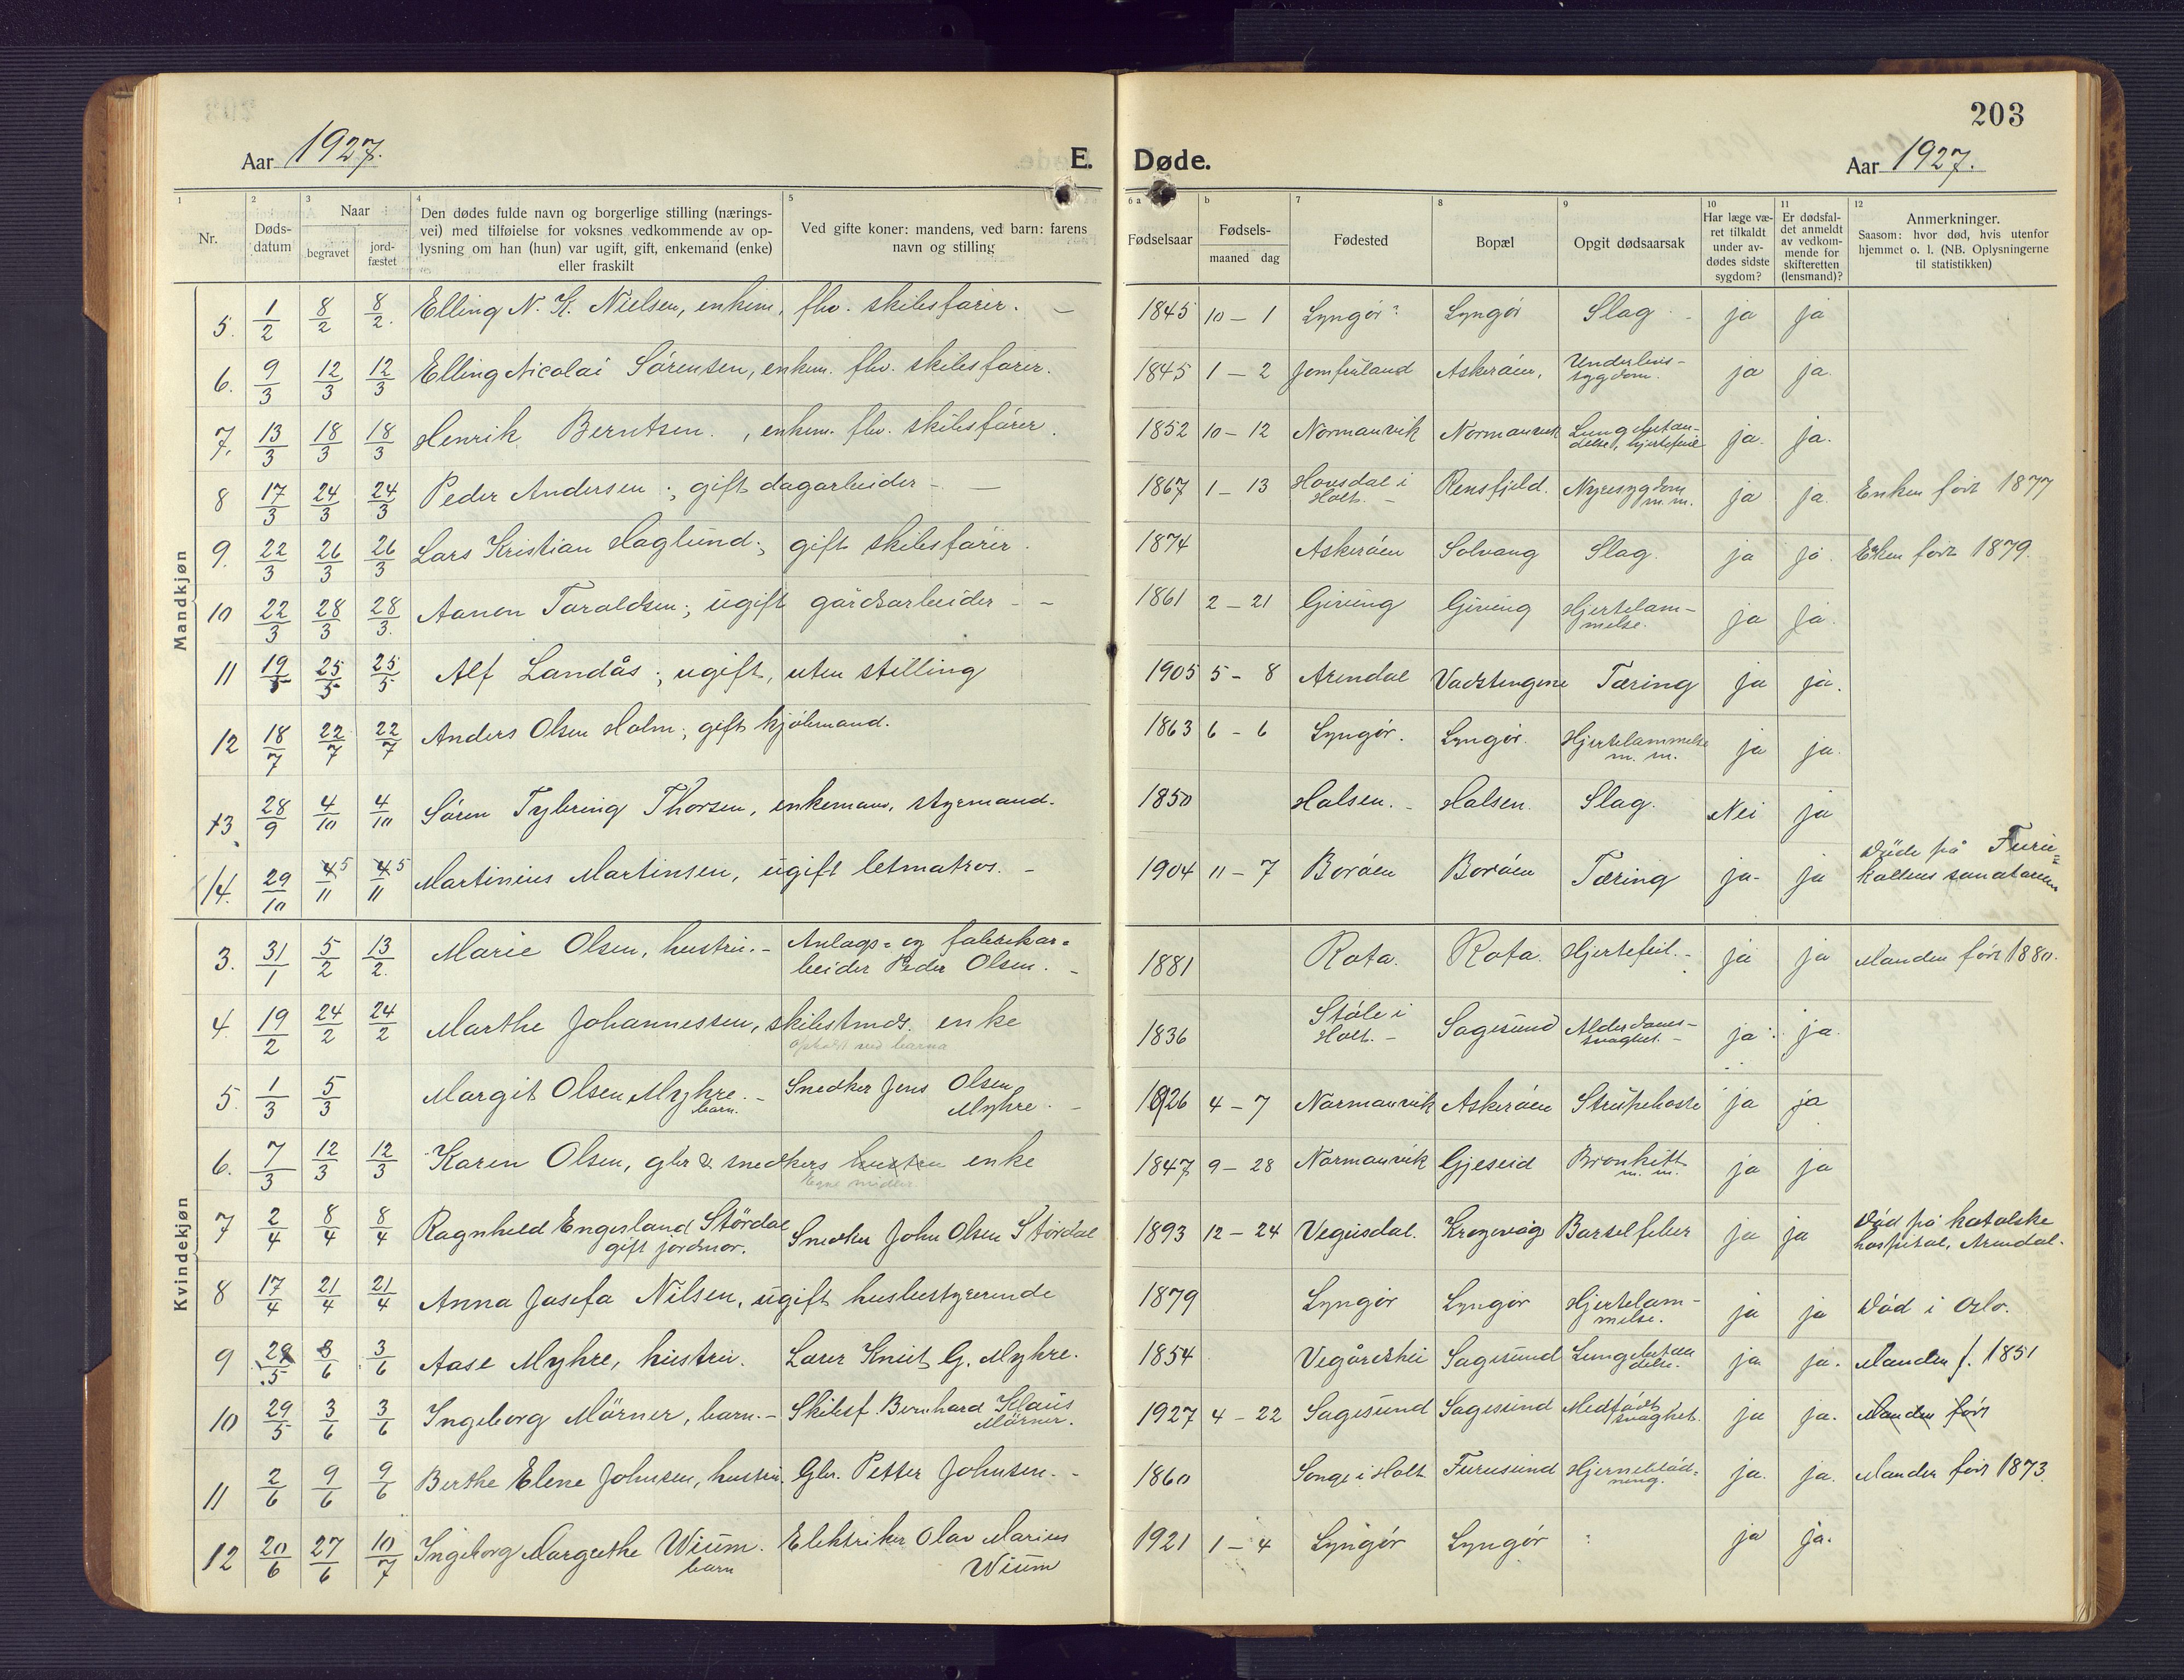 203
Aar 1927. E. Døde. Aar 1927.
1 Nr.
2 Døds-
datum
3 Naar
begravet
jord-
fæstet
4 Den dødes fulde navn og borgerlige stilling (nærings-
vei) med tilføielse for voksnes vedkommende av op-
lysning om han (hun) var ugift, gift, enkemand (enke)
eller fraskilt
5 Ved gifte koner: mandens, ved barn: farens
navn og stilling
6 a Fødselsaar
b Fødsels-
maaned dag
7 Fødested
8 Bopæl
9 Opgit dødsaarsak
10 Har læge væ-
ret tilkaldt
under av-
dødes sidste
sygdom?
11 Er dødsfal-
det anmeldt
av vedkom-
mende for
skifteretten
(lensmand)?
12 Anmerkninger.
Saasom: hvor død, hvis utenfor
hjemmet o. l. (NB. Oplysningerne
til statistikken)
Mandkjøn
5. 1/2 8/2 8/2. Elling N. K. Nielsen, enkem, fhv. skibsfører. – 1845 10 – 1 Lyngør? Lyngør Slag ja ja
6. 9/3 12/3 12/3 Elling Nicolai Sörensen, enkem. fhv. skibsfører. 1845 1 – 2 Jomfruland Askerøen, Underlivs-
sygdom. ja ja.
7. 13/3 18/3 18/3 Henrik Berntsen., enkem. fhv. skibsfører. 1852 10 – 12 Normanvik Normanvik Lungebetæn-
delse, hjertefeil ja. ja.
8 17/3 24/3 24/3 Peder Andersen; gift dagarbeider – – 1867 1 – 13 Hovsdal i
Holt. – Rensfjeld. Nyresygdom
m.m. ja ja. Enken født 1877
9. 22/3 26/3 26/3 Lars Kristian Haglund; gift skibsfører. 1874 Askerøen Solvang Slag. ja ja. Enken født 1879.
10 22/3 28/3 28/3. Aanon Taraldsen; ugift gårdsarbeider – – 1861 2 – 21 Giving Giving Hjertelam-
melse. ja ja.
11 19/5 25/5 25/5 Alf Landås; ugift, uten stilling 1905 5 – 8 Arendal Vadstengene Tæring ja ja.
12 18/7 22/7 22/7 Anders Olsen Holm; gift kjøbmand. 1863 6 – 6 Lyngør. Lyngør. Hjertelammelse
m. m. ja ja.
13 28/9 4/10 4/10 Sören Tybring Thorsen, enkeman, styrmand. 1850 Halsen. – Halsen. Slag. Nei ja
14. 29/10 4 5/11 4 5/11 Martinius Martinsen, ugift letmatros. – 1904 11 – 7 Borøen Borøen Tæring ja – ja Døde på Furu=
kollens sanatorium
Kvindekjøn
3. 31/1 5/2 13/2. Marie Olsen, hustru. – Anlags= og fabrikar=
beider Peder Olsen. – 1881 Rota. Rota. Hjertefeil. – ja ja Manden født 1880.
4. 19/2 24/2 24/2 Marthe Johannessen, skibstmds. enke
ophold ved barna 1836 Støle i
Holt. – Sagesund Alderdoms-
svaghet. – ja ja.
5. 1/3 5/3 Margit Olsen Myhre. –
barn. Snedker Jens Olsen
Myhre. – 1926 4 – 7 Normanvik Askerøen Strupehoste ja ja
6. 7/3 12/3 12/3 Karen Olsen, gbr & snedkers hustru enke
Egne midler 1847 9 – 28 Normanvik Gjeseid Bronkitt
m. m. ja ja
7 2/4 8/4 8/4 Ragnhild Engesland Stördal
gift jordmor. Snedker John Olsen Stördal 1893 12 – 24 Vegusdal. Krogevåg Barselfeber ja ja Död på katolske
hospital, Arendal.
8 17/4 21/4 21/4 Anna Josefa Nilsen, ugift husbestyrerinde 1879 Lyngør Lyngør Hjertelam-
melse. ja ja Død i Oslo.
9 28/5 3/6 3/6 Aase Myhre, hustru. Lærer Knut G. Myhre. 1854 Vegårshei Sagesund Lungebetæn
delse. ja ja. Manden f. 1851
10 29/5 3/6 3/6 Ingeborg Mörner, barn. – Skibsf. Bernhard Klaus
Mörner. 1927 4 – 22 Sagesund Sagesund Medfødt
svaghet. ja ja. Manden født
11 2/6 9/6 9/6 Berthe Elene Johnsen, hustru. Gbr. Petter Johnsen. – 1860 Songe i Holt Furusund Hjerneblød=
ning. ja. ja. Manden født 1873.
12 20/6 27/6 10/7 Ingeborg Margrethe Wium.
barn Elektriker Olav Marius
Wium 1921 1 – 4 Lyngør Lyngør ja ja.